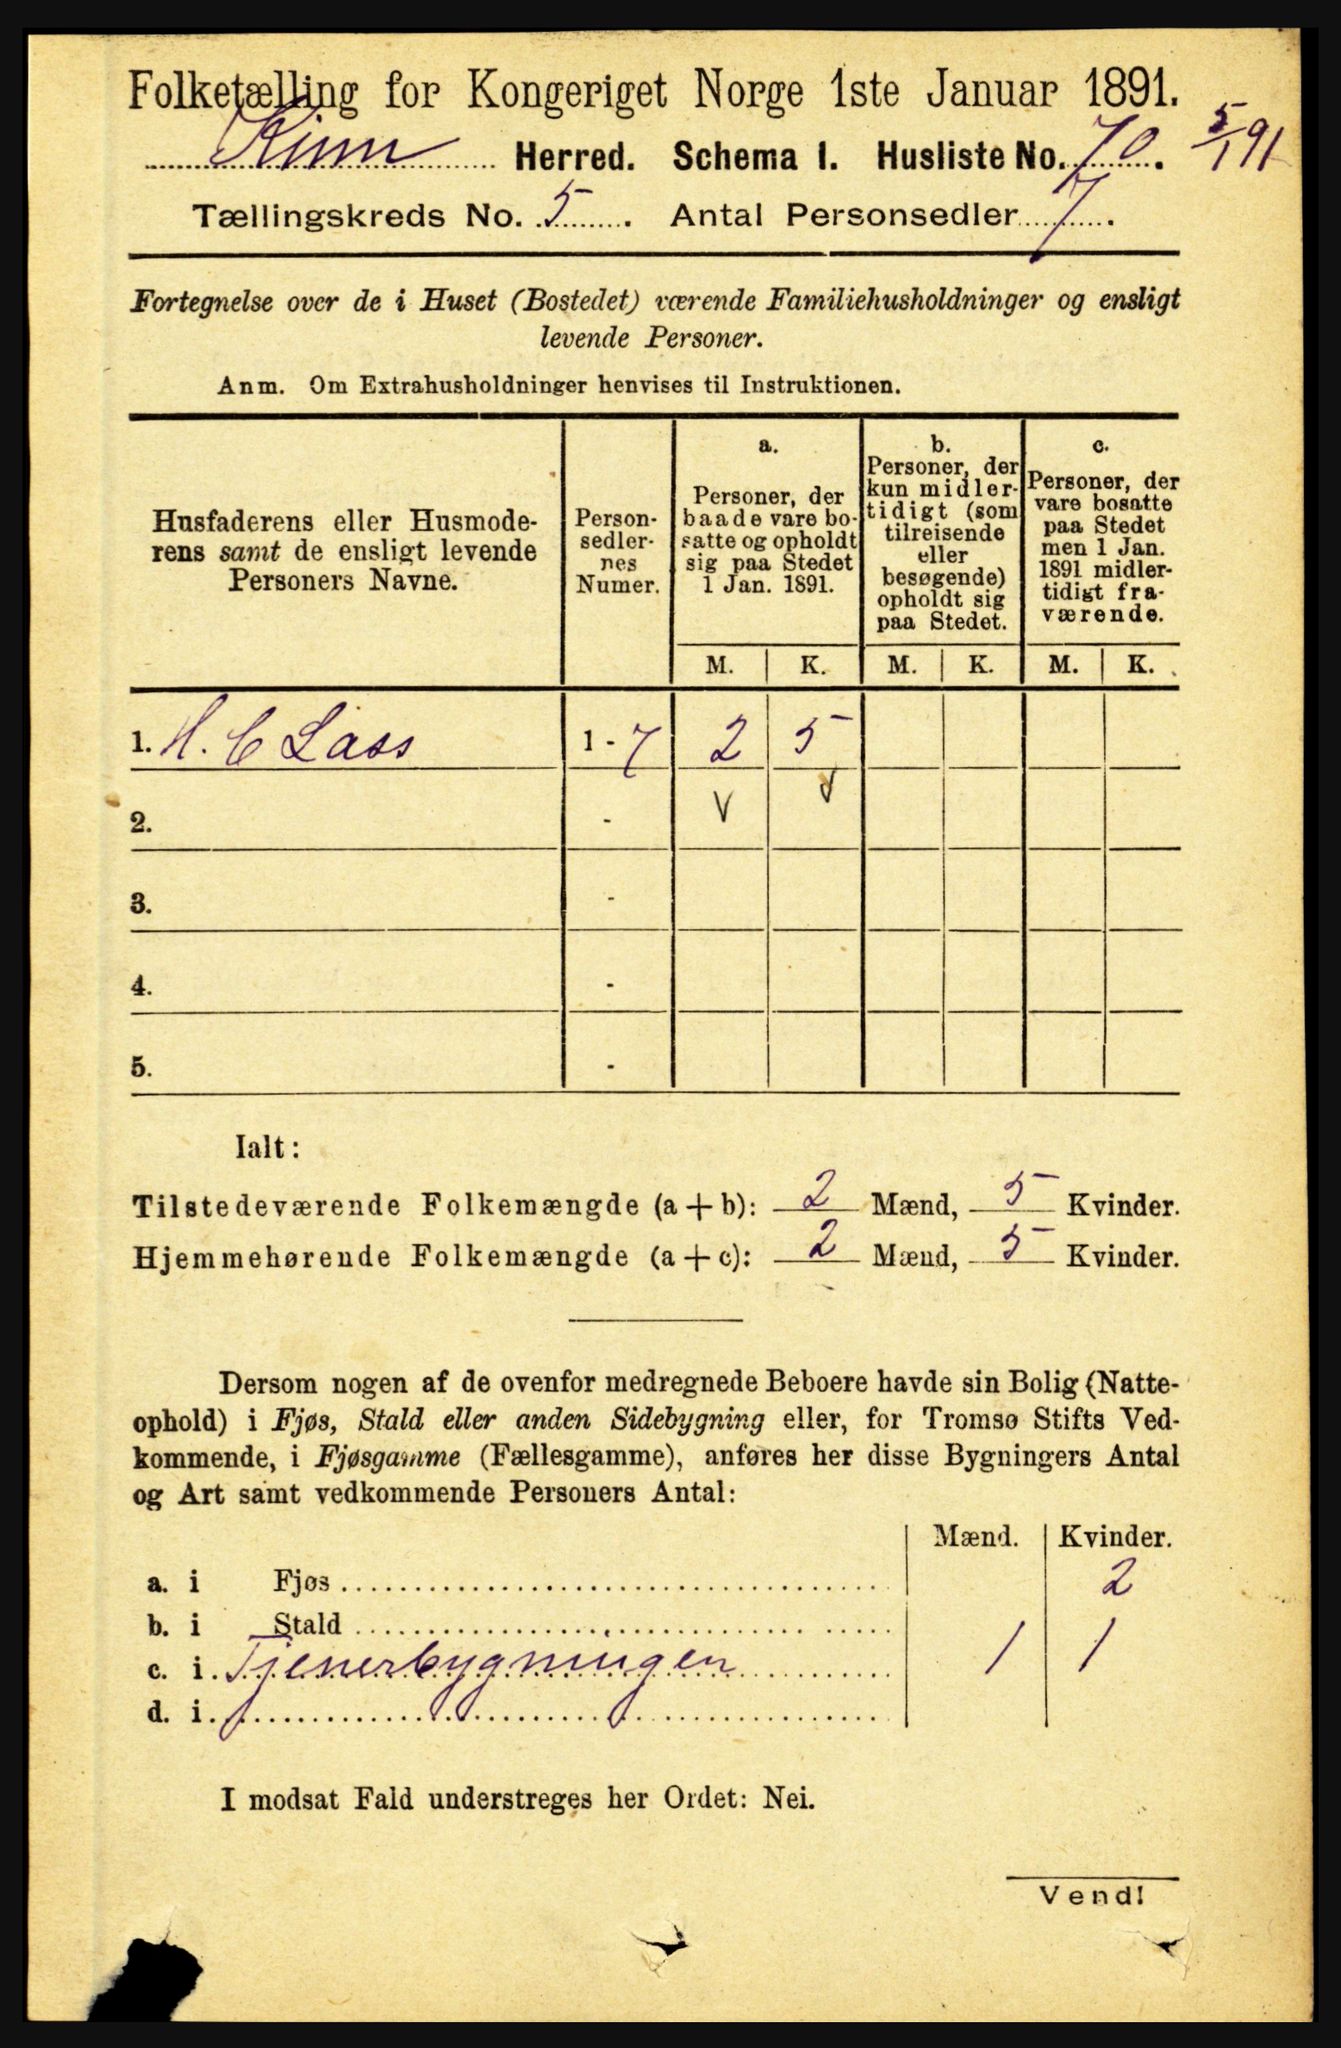 Folketælling for Kongeriget Norge 1ste Januar 1891.
Kinn Herred. Schema 1. Husliste No. 70. 5/1 91
Tællingskreds No. 5. Antal Personsedler 7.
Fortegnelse over de i Huset (Bostedet) værende Familiehusholdninger og ensligt
levende Personer.
Anm. Om Extrahusholdninger henvises til Instruktionen.
Husfaderens eller Husmode-
rens samt de ensligt levende
Personers Navne.
Person-
sedler-
nes
Numer.
a.
Personer, der
baade vare bo-
satte og opholdt
sig paa Stedet
1 Jan. 1891.
b.
Personer, der
kun midler-
tidigt (som
tilreisende
eller
besøgende)
opholdt sig
paa Stedet.
c.
Personer, der
vare bosatte
paa Stedet
men 1 Jan.
1891 midler-
tidigt fra-
værende.
M. K. M. K. M. K.
1. H. C Lass 1 - 7 2 5
2. - V V
3. -
4. -
5. -
Ialt:
Tilstedeværende Folkemængde (a + b): 2 Mænd, 5 Kvinder.
Hjemmehørende Folkemængde (a + c): 2 Mænd, 5 Kvinder.
Dersom nogen af de ovenfor medregnede Beboere havde sin Bolig (Natte-
ophold) i Fjøs, Stald eller anden Sidebygning eller, for Tromsø Stifts Ved-
kommende, i Fjøsgamme (Fællesgamme), anføres her disse Bygningers Antal
og Art samt vedkommende Personers Antal:
Mænd. Kvinder.
a. i Fjøs 2
b. i Stald
c. i Tjenerbygningen 1 1
d. i
I modsat Fald understreges her Ordet: Nei.
Vend!